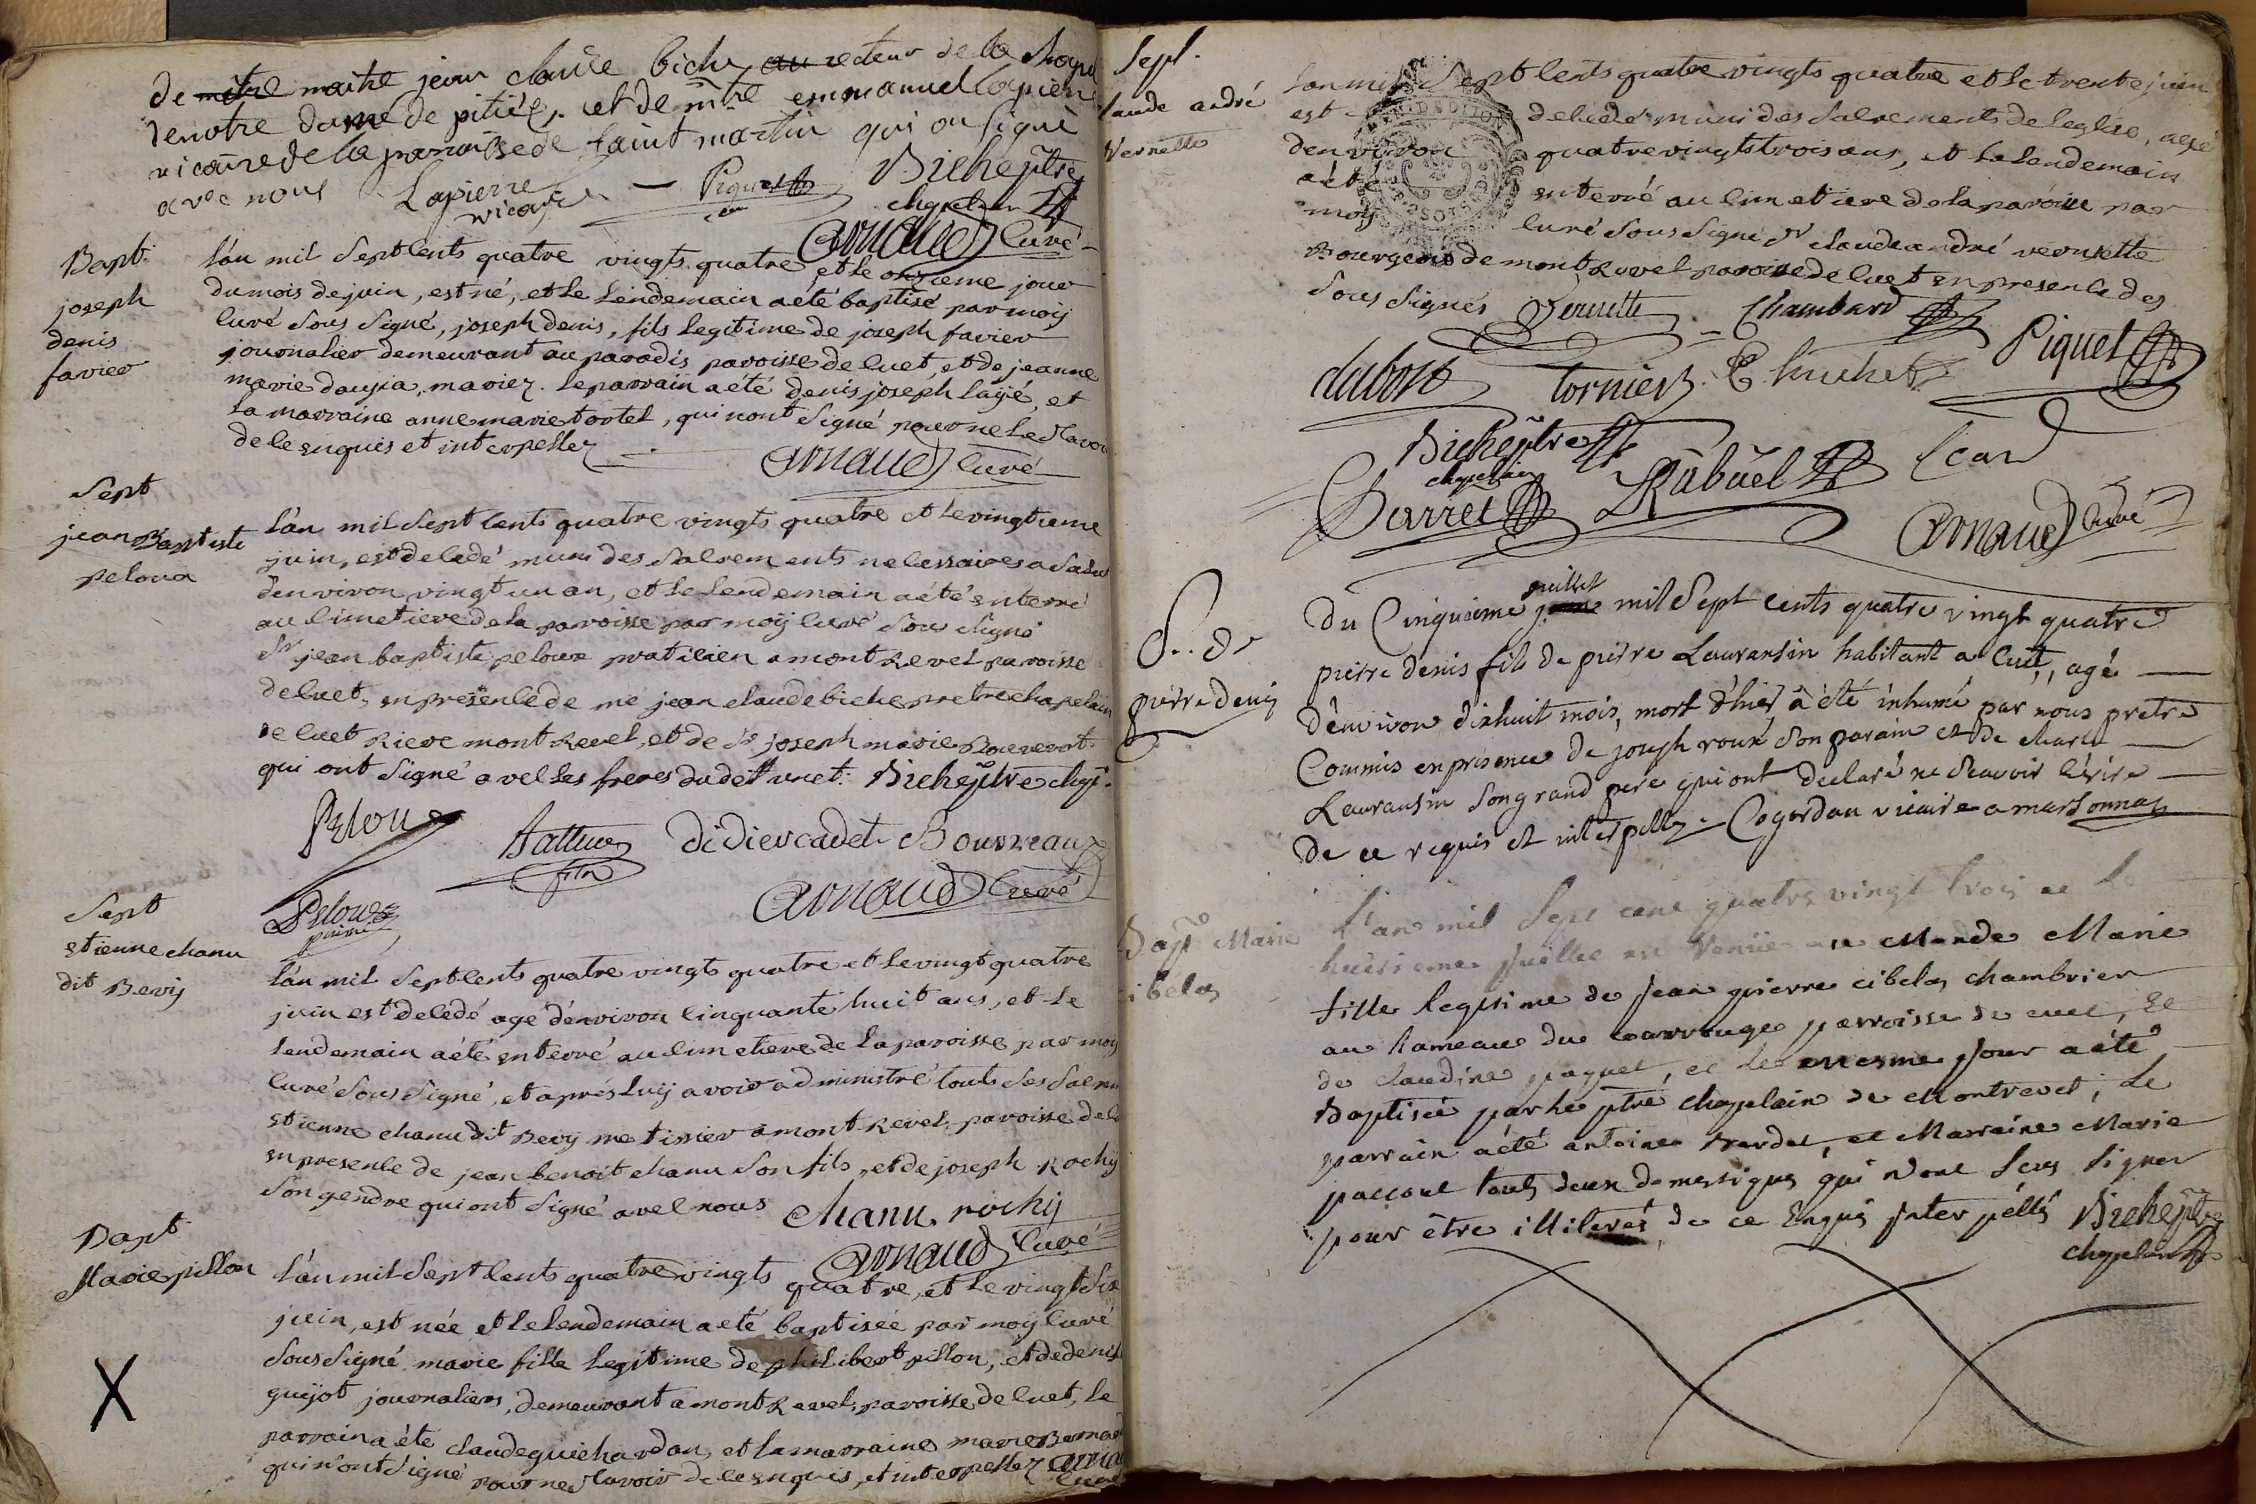 de mitre maitre jean claude biche recteur de la
de notre dame de pitiéz, et de mtre emmanuel lapierre
vicaire de la paroisse de saint martin qui on signé
avec nous Lapierre vicaire Piquet Biche ptre
chapelain
Arnaud Curé
Bapt:
joseph
denis
favier
l'an mil Sept Cents quatre vingts quatre et le onzieme jour
du mois de juin, est né, et le Lendemain a été baptisé par moij
Curé Sous Signé, joseph denis, fils Legitime de joseph favier
journalier demeurant au paradis paroisse de Cuet, et de jeanne
marie mariez. le parrain a été denis joseph et
La marraine anne marie tortel, qui n'ont Signé pour ne le Scavoir
de ce enquis et interpellez
Arnaud Curé
Sept
jean Baptiste
peloux
L'an mil Sept Cents quatre vingts quatre et le vingtieme
juin, est decedé muni des Sacrements necessaires a Salut
d'environ vingt un an, et le Lendemain a été enterré
au Cimetiere de la paroisse par moij Curé Sous Signé
Sr jean baptiste peloux praticien a mont Revel paroisse
de Cuet, en presence de me jean claude biche pretre chapelain
de Cuet Riere mont Revel, et de Sr joseph marie
qui ont Signé avec les freres du det Cuet: Biche ptre chap.
Peloux
fils didier cadet Bouvreau
Arnaud Curé
Peloux
Sept
Etienne chanu
dit Bevij
L'an mil Sept Cents quatre vingts quatre et le vingt quatre
juin est decedé agé d'environ Cinquante huit ans, et le
Lendemain a été enterré au Cimetiere de la paroisse par moij
Curé Sous Signé, et aprés Luij avoir administré touts Ses Sacrem
Etienne chanu dit Bevij me tissier a mont Revel, paroisse de
en presence de jean benoit chanu Son fils, et de joseph Rochij
Son gendre qui ont Signé avec nous Chanu rochij
Arnaud Curé
Bapt
Marie pillon
L'an mil Sept Cents quatre vingts quatre, et le vingt Six
juin, est née et le Lendemain a été baptisée par moij Curé
Sous Signé marie fille Legitime de philibert pillon, et de denise
guijot journaliers, demeurant a mont Revel, paroisse de Cuet, le
parrain a été claude guichardan, et la marraine marie Bernard
qui n'ont Signé pour ne Scavoir de ce enquis, et interpellez Arnaud
Curé
Sept.
Claude andré
Vernette
L'an mil Sept Cents quatre vingts quatre et le trente juin
est decedé muni des Sacrements de l'eglise, agé
d'environ quatre vingts trois ans, et le Lendemain
a été enterré au Cimetiere de la paroisse par
moij Curé Sous Signé Sr claude andré vernette
Bourgeois de mont Revel paroisse de Cuet en presence des
Sous Signés Vernette Chambard
dubost tornier Chuchet Piquet
Biche ptre
chapelain
Barret Rabuel
Arnaud Curé
S..re
pierre denis
Du Cinquieme juillet mil Sept cents quatre vingt quatre
pierre denis fils de pierre Lauransin habitant a Cuet, agé
d'environ dixhuit mois, mort d'hier a été inhumé par nous pretre
Commis en presence de joseph roux Son parain et de
Lauransin Son grand pere qui ont declaré ne Scavoir écrire
de ce requis et interpellez. Cogordan vicaire a marsonnas
Bapt Marie
Cibelas
L'an mil Sept cent quatre vingt trois et le
huitieme Juillet est Venüe au Monde Marie
fille legitime de Jean pierre cibelas chambrier
au hameau du Carrouge parroisse de cuet, et
de claudine paquet, et le mesme Jour a été
Baptisée par Biche ptre chapelain de Montrevel; le
parrain a été antoine et Marraine Marie
touts deux domestiques qui n'ont Sceu Signer
pour être illiterés de ce Enquis Interpellés Biche ptre
chapelain